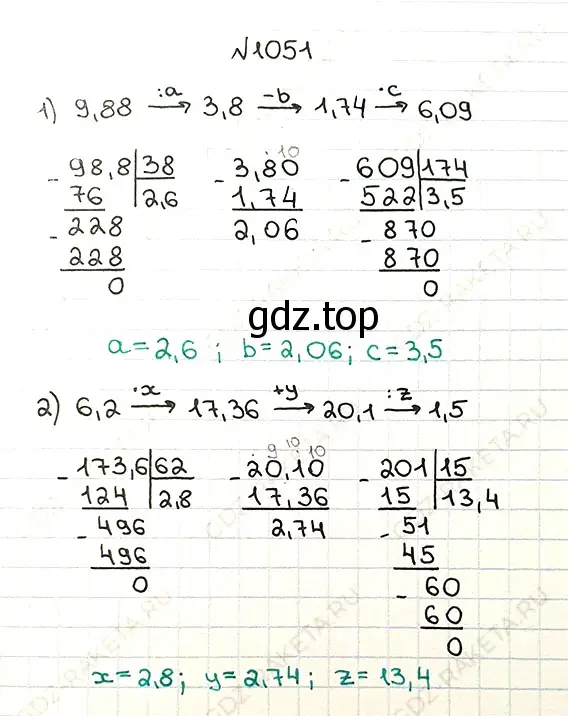 №1051
1) 9,88 :a→ 3,8 −b→ 1,74 ·c→ 6,09
98,8 | 38   3,80   609 | 174
76 | 2,6   1,74   522 | 3,5
228   2,06   870
228   870
0   0
gdz.top
a=2,6 ; b=2,06; c=3,5
2) 6,2 ·x→ 17,36 +y→ 20,1 :z→ 1,5
173,6 | 62   20,10   201 | 15
124 | 2,8   17,36   15 | 13,4
496   2,74   51
496   45
0   60
60
0
x=2,8; y=2,74; z=13,4